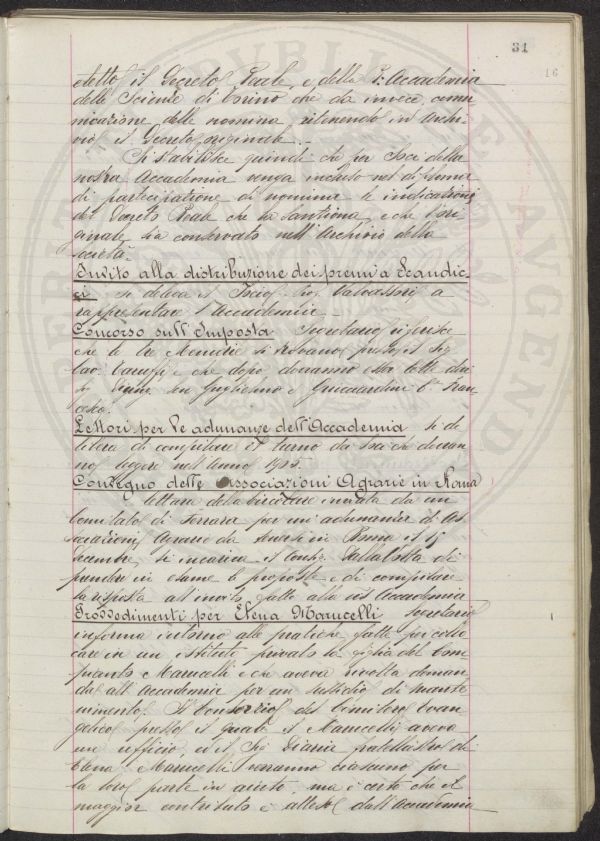 31
16
detto il Decreto Reale, e della R. Accademia
delle Scienze di Torino che dà invece comu-
nicazione delle nomina ritenendo in Archi-
vio il Decreto originale.
Si stabilisce quindi che pei Soci della
nostra Accademia venga incluso nel diploma
di partecipazione di nomina le indicazioni
del Decreto Reale che la sanziona, e che l'ori-
ginale sia conservato nell'Archivio della
società.
Invito alla distribuzione dei premi a Scandic-
ci si delega il Socio Valvassori a
rappresentare l'Accademia.
Concorso sull'Imposta Segretario riferisce
che le tre Memorie si trovano presso il Sig.
Cav. Caruso e che dopo dovranno esser lette dai
Sigg. Guglielmo e Guicciardini Fran-
cesco.
Lettori per le adunanze dell'Accademia si de-
libera di compilare il turno dei Soci che dovran-
no leggere nell'anno 1905.
Convegno delle Associazioni Agrarie in Roma
lettura della circolare inviata da un
Comitato di Ferrara per un'adunanza di As-
sociazioni Agrarie da tenersi in Roma il 15
Decembre, si incarica il Consig. Dalla Volta di
prendere in esame le proposte e di compilare
la risposta all'invito fatto alla ns Accademia
Provvedimenti per Elena Marucelli Segretario
informa intorno alle pratiche fatte per collo-
care in un istituto privato la figlia del Com-
pianto Marucelli e che aveva rivolta doman-
da all'Accademia per un sussidio di mante-
nimento. Il Consorzio del Cimitero Evan-
gelico presso il quale il Marucelli aveva
un ufficio, ed il Sig. fratellastro di
Elena Marucelli verranno ciascuno per
la loro parte in aiuto, ma è certo che il
maggior contributo è atteso dall'Accademia